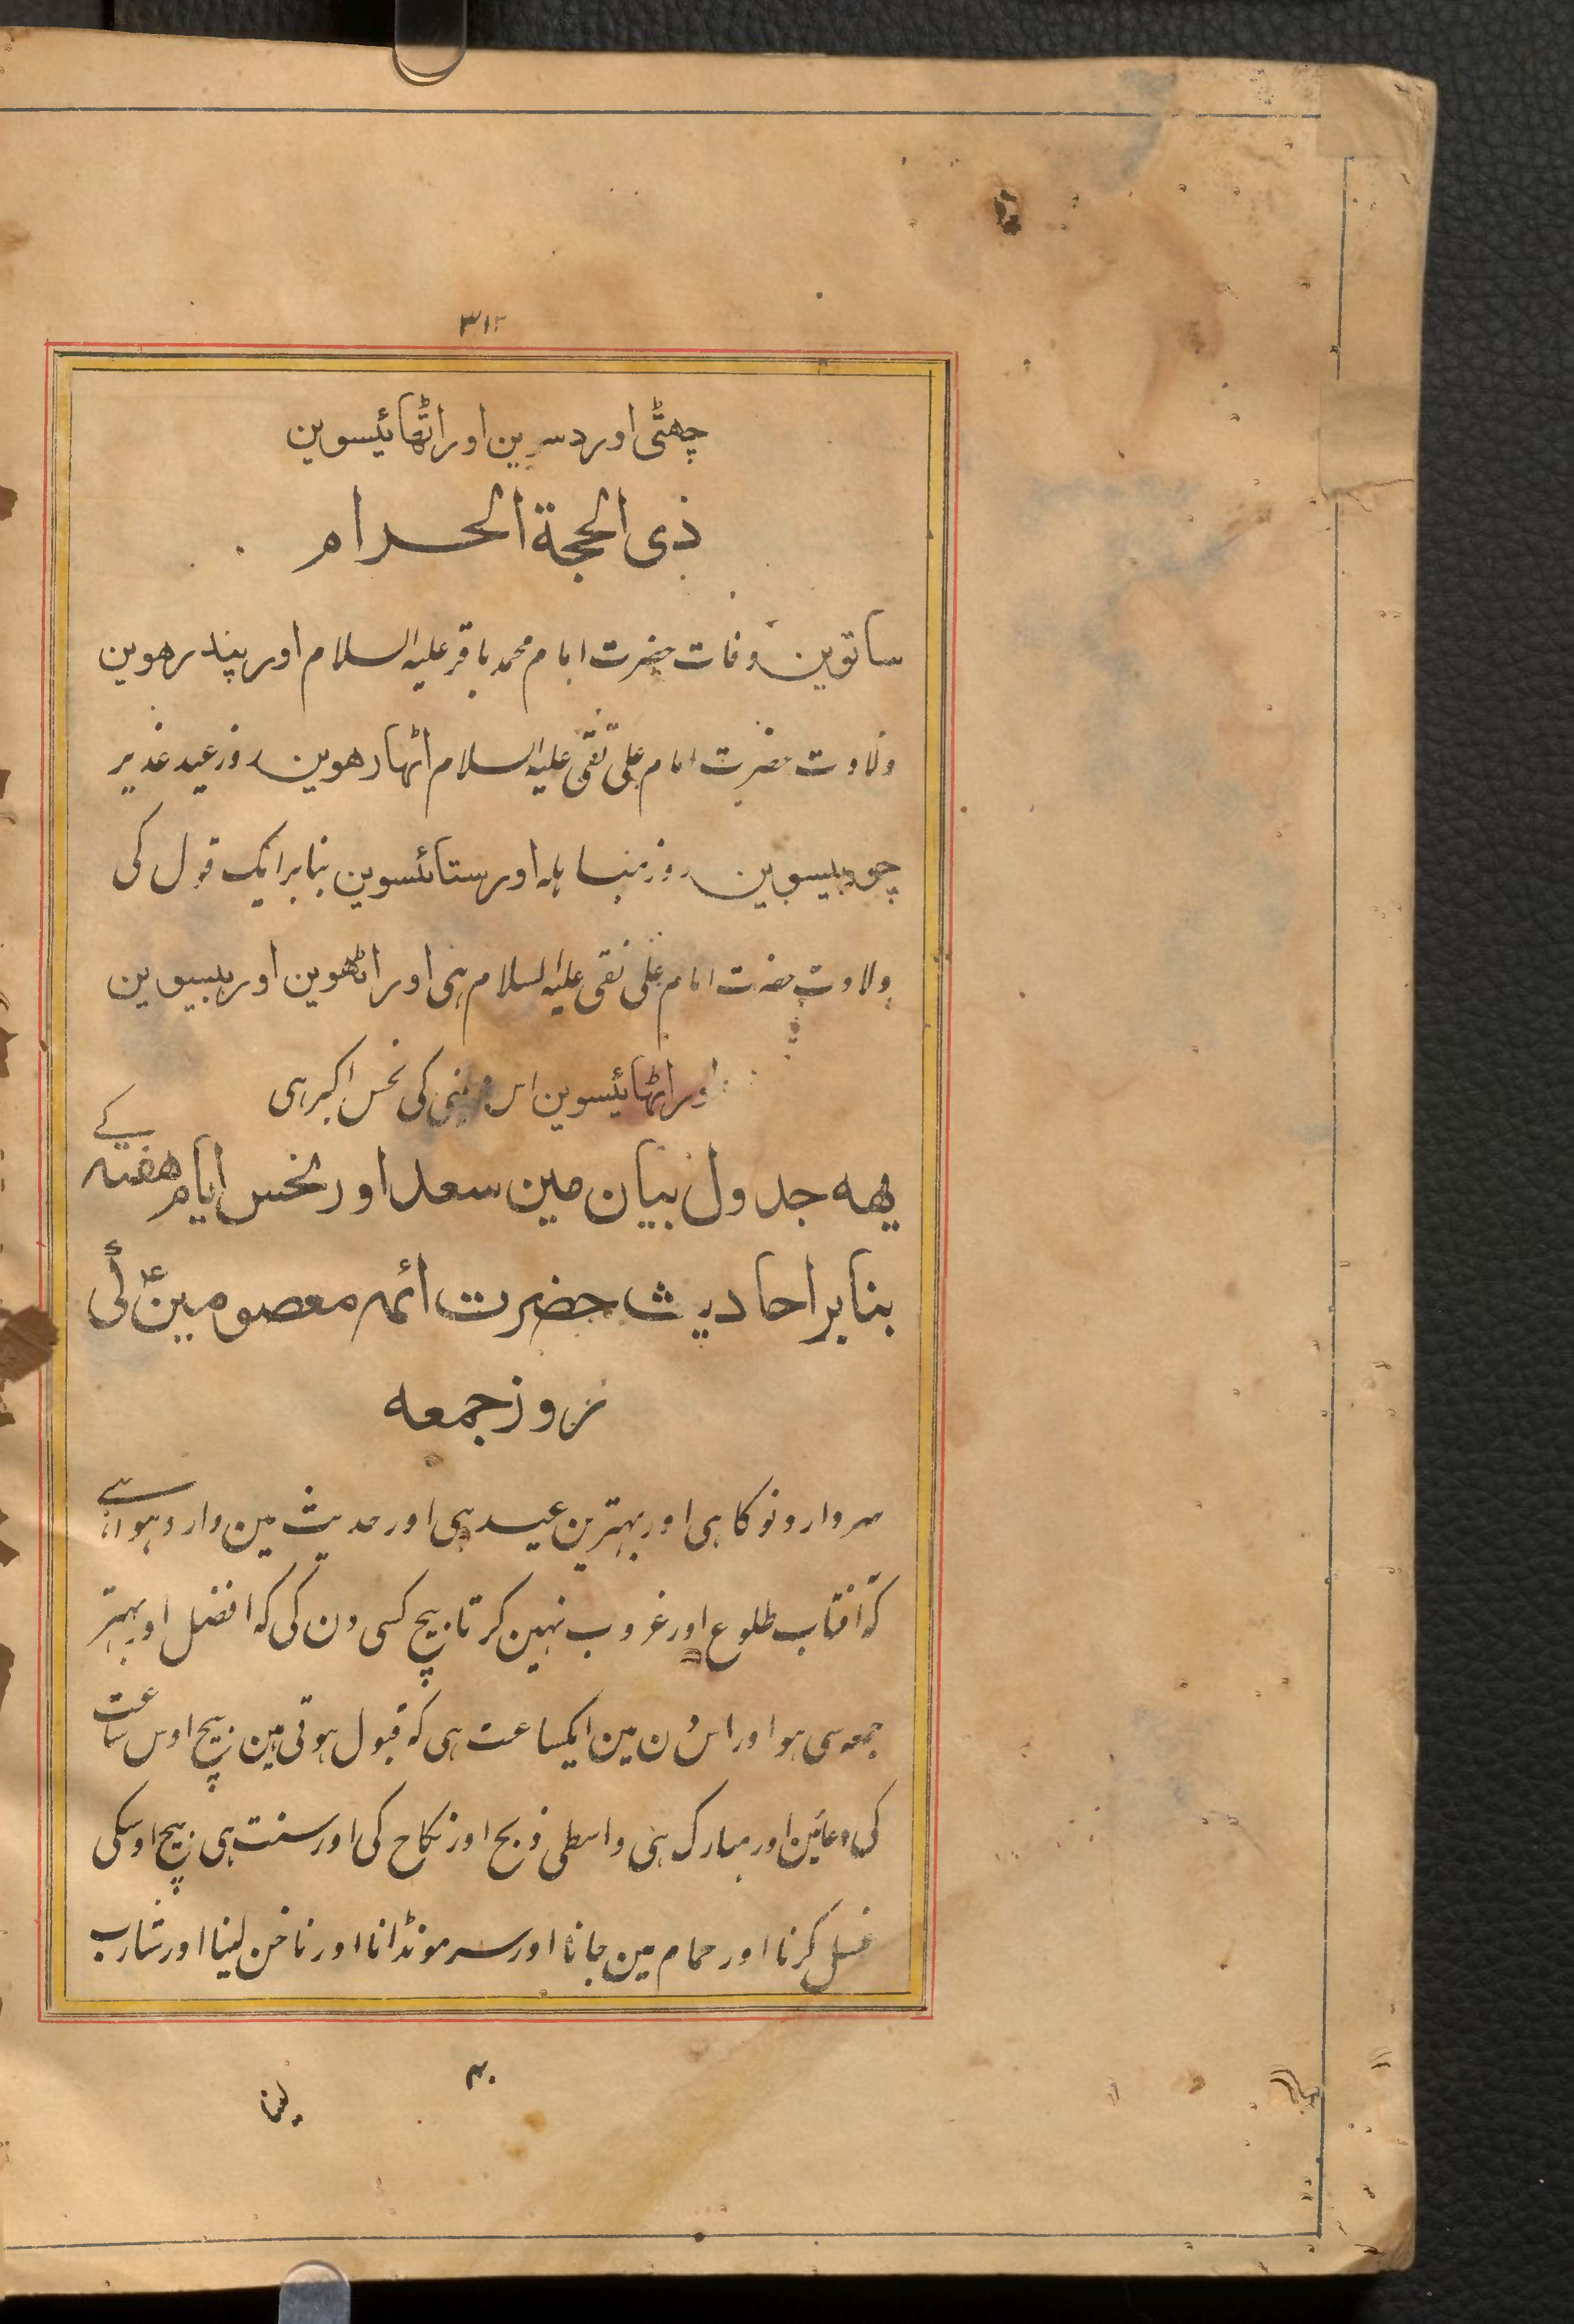 ۳۱۲
چھٹی اور دسوین اور اٹھائیسوین
ذی الحجة الحرام
ساتوین وفات حضرت امام محمد باقر علیہ السلام اور پندرھوین
ولادت حضرت امام علی نقی علیہ السلام اٹھارھوین روز عید غدیر
چوبیسوین روز مباہلہ اور ستائسوین بنابر ایک قول کی
ولادت حضرت امام علی نقی علیہ السلام ہی اور اٹھوین اور بیسوین
اور اٹھائیسوین اس مہینی کی نحس اکبر ہی
یهہ جدول بیان مین سعد اور نحس ایام هفتہ کے
بنابر احادیث حضرت ائمہ معصومین ع کی
روز جمعه
سردار دنو کا ہی اور بہترین عید ہی اور حدیث مین وارد ہوا ہے
کہ آفتاب طلوع اور غروب نہین کرتا بیچ کسی دن کی کہ افضل اور بہتر
جمعہ سی ہو اور اس دن مین ایکساعت ہی کہ قبول ہوتی ہین بیچ اوس ساعت
کی دعائین اور مبارک ہی واسطی ذبح اور نکاح کی اور سنت ہی بیچ اوسکی
غسل کرنا اور حمام مین جانا اور سر مونڈانا اور ناخن لینا اور شارب
لینا